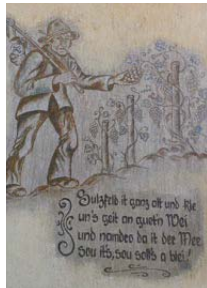 Sulzfeld is ganz olt und schö
un's geit an guet'n Wei
und nambeo da is der Mee
sou it's, sou soll's a blei!